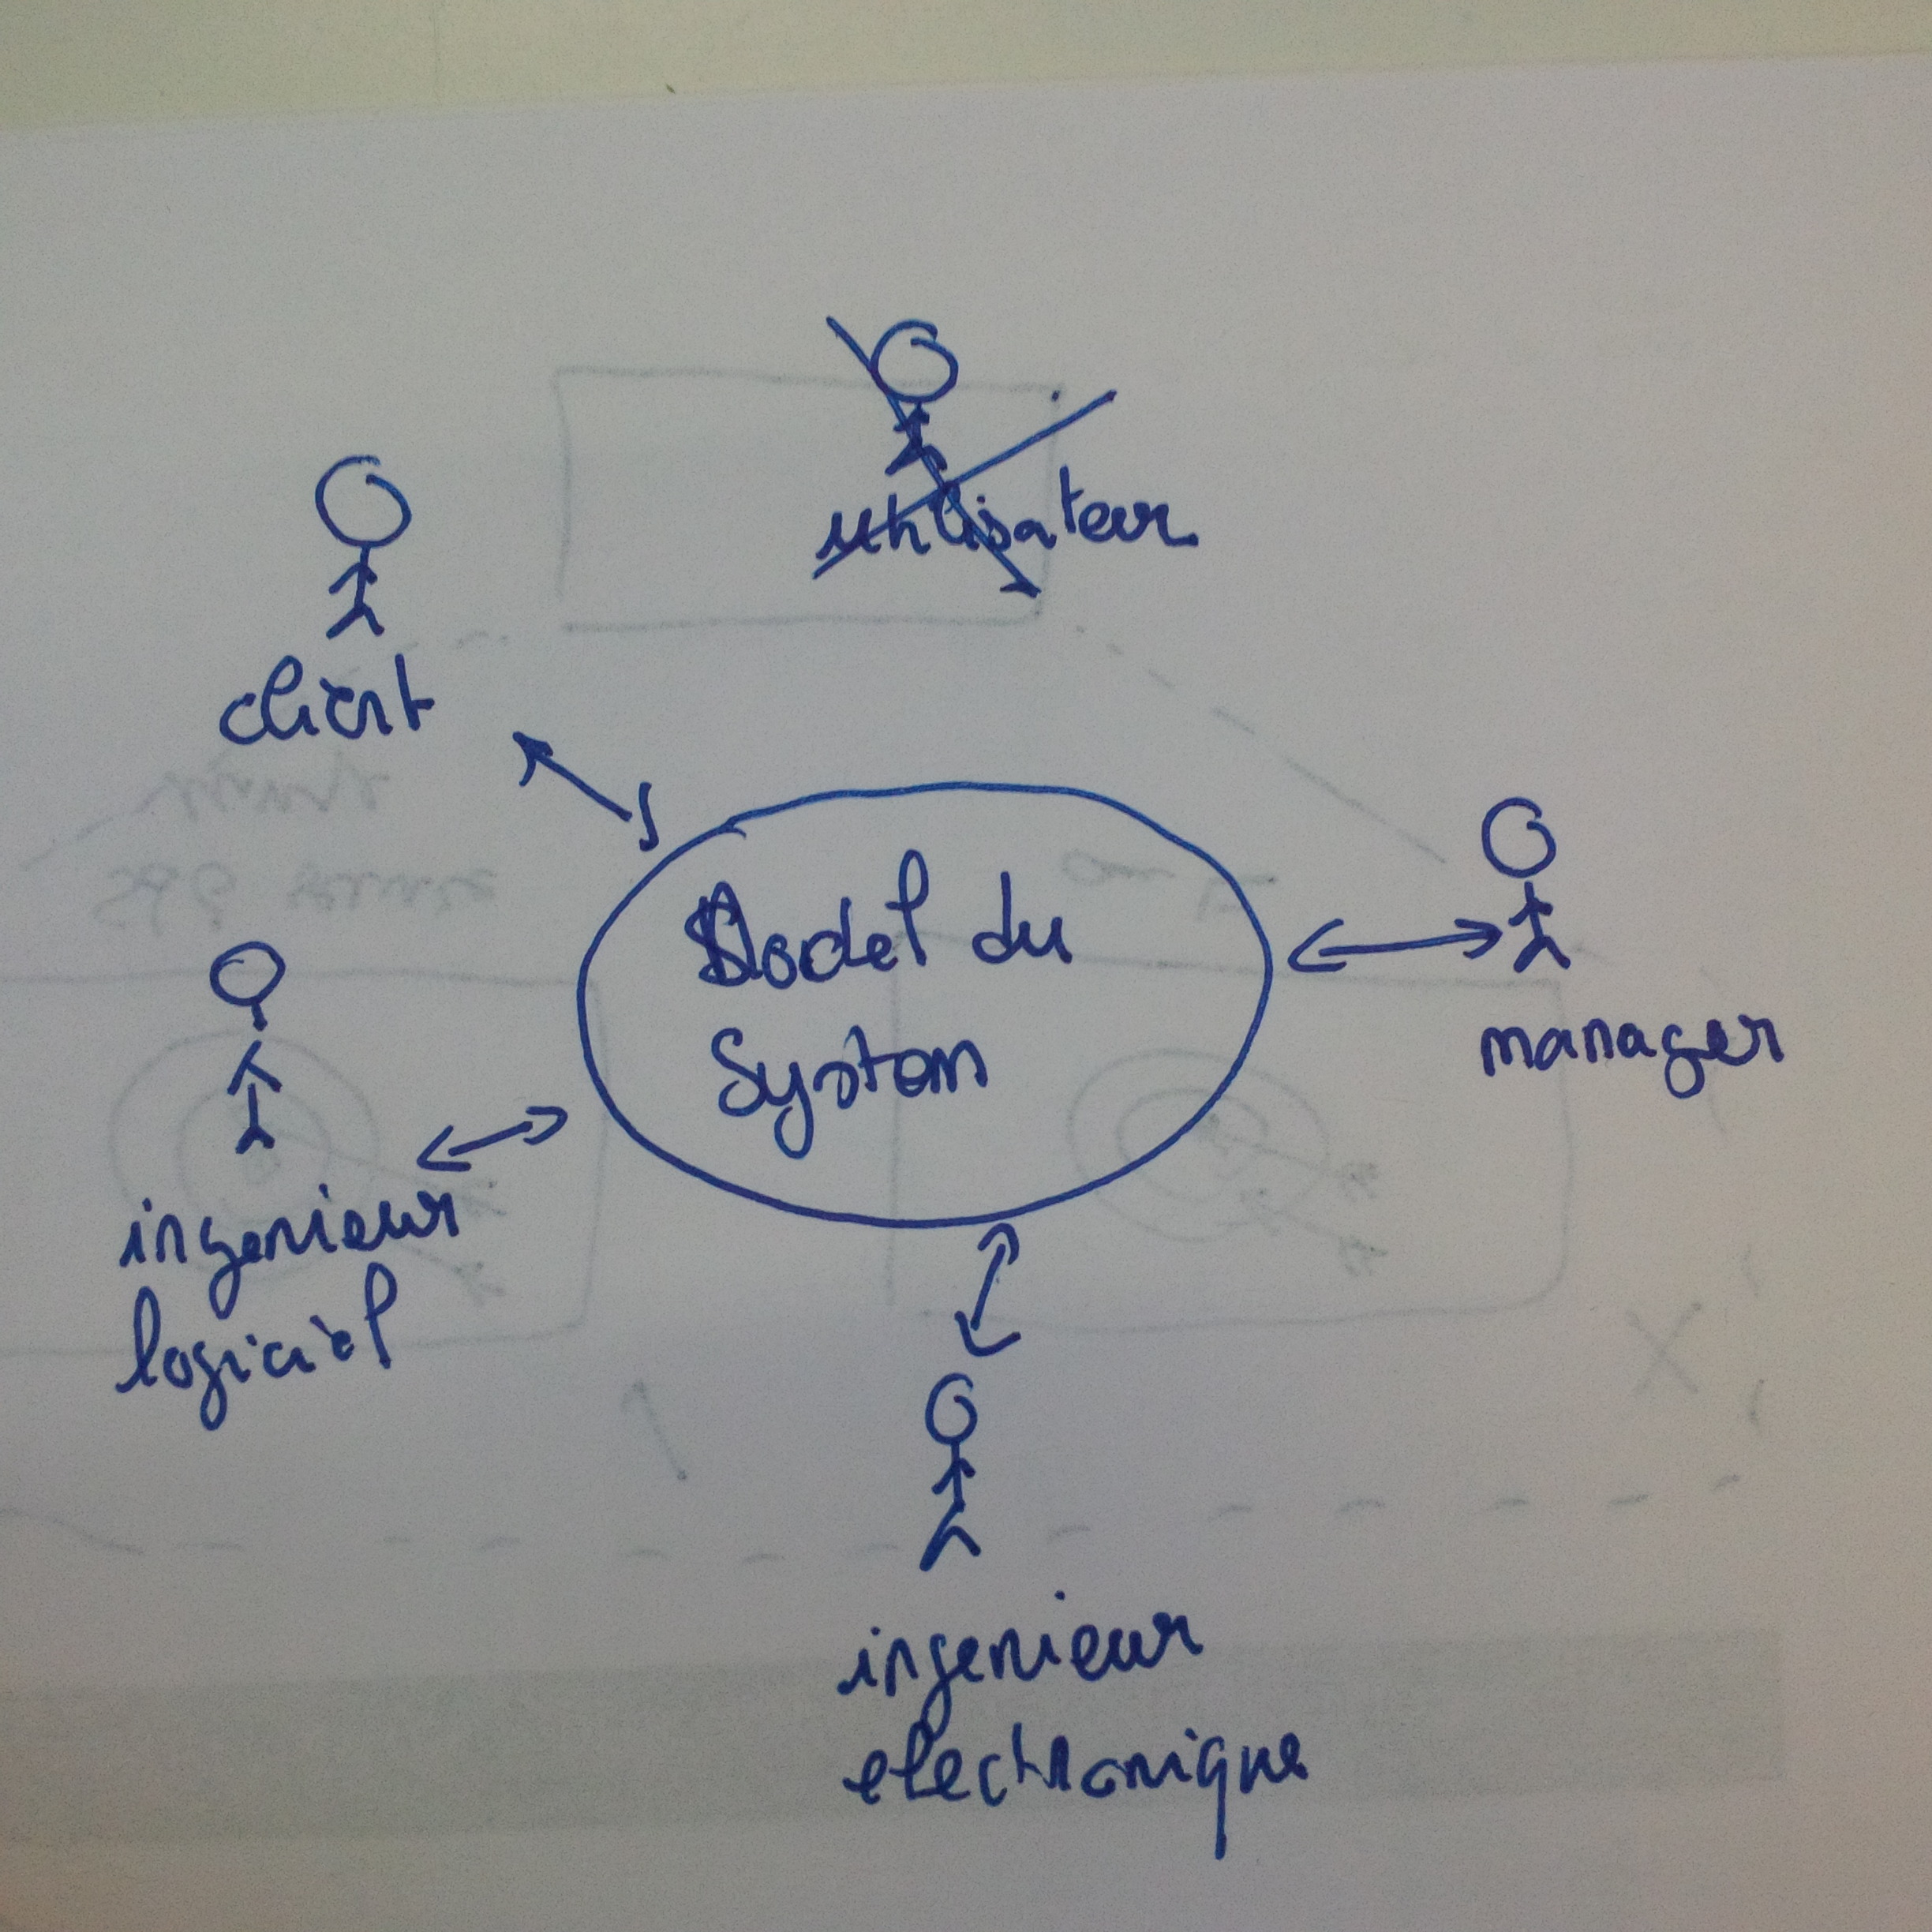 utilisateur
client
Model du
System
manager
ingenieur
logiciel
ingenieur
electronique